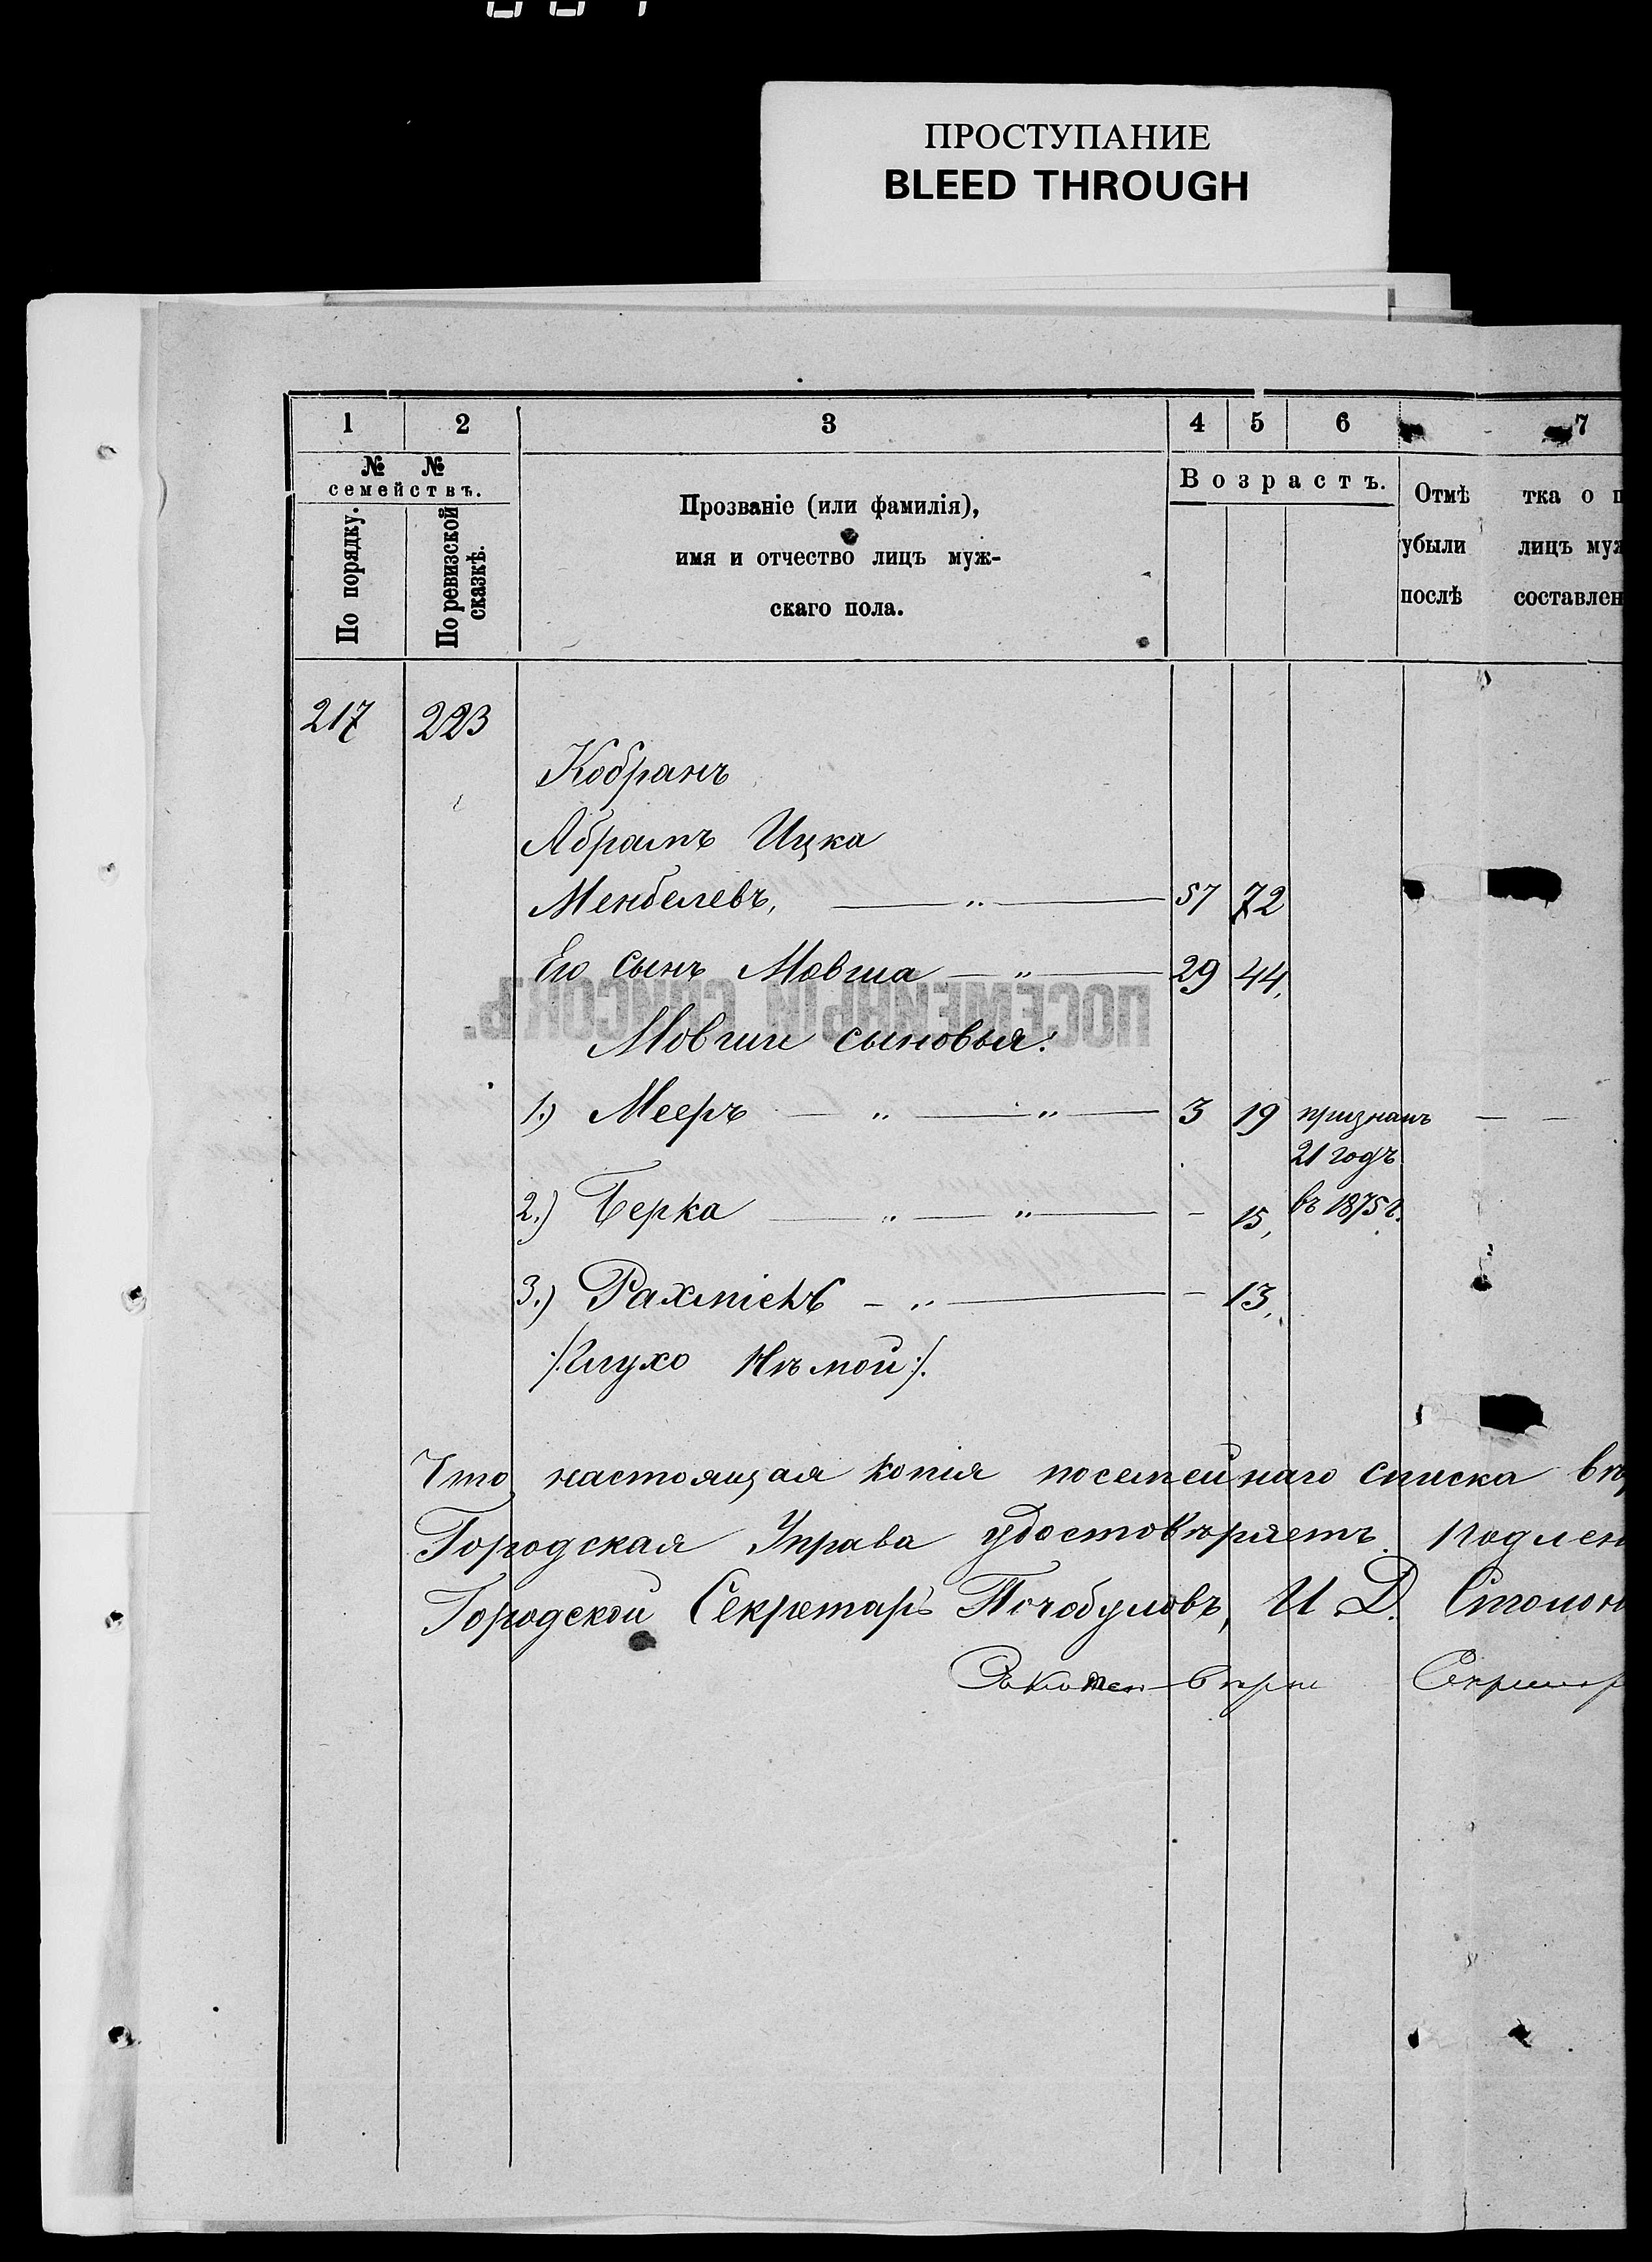 ПРОСТУПАНИЕ
BLEED THROUGH
1 2 3 4 5 6 7
№ №
семействъ.
По порядку.
По ревизской
сказкѣ.
Прозваніе (или фамилія),
имя и отчество лицъ муж-
скаго пола.
Возрастъ.
Отмѣ тка о п
убыли лицъ муж
послѣ составлен
217 223
Кобранъ
Абрамъ Ицка
Менделевъ, — „ — 57 72
Его сынъ Мовша — „ — 29 44.
ПОСЕМЕЙНЫЙ СПИСОКЪ.
Мовши сыновья:
1.) Мееръ — „ — „ — 3 19 признанъ — —
21 годъ
2.) Берка — „ — „ — - 15, въ 1875 г.
3.) Рахміель — „ — - 13,
/:Глухо Нѣмой:/.
Что настоящая копія посемейнаго списка вѣр
Городская Управа удостовѣряетъ. Подлен
Городской Секретарь И. Д.
вѣрно Секретар